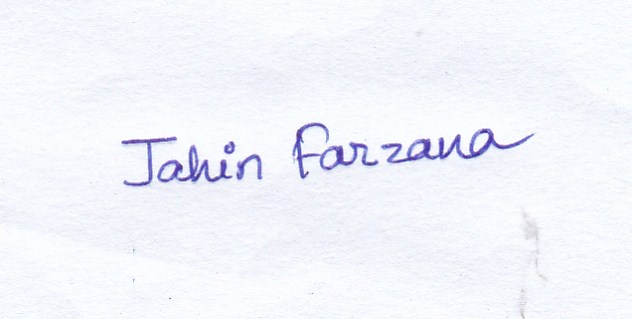 Jahin Farzana